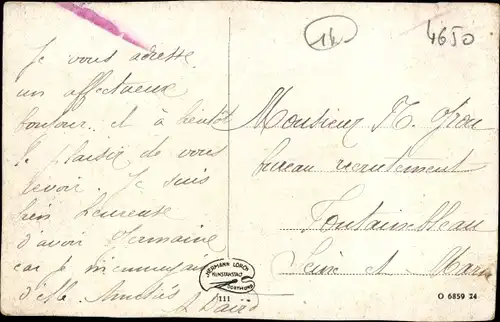 Je vous adresse
un affectueux
bonjour. et à bientôt
le plaisir de vous
revoir. Je suis
bien heureuse
d'avoir Germaine
car je m'ennuyais
d'elle. Amitiés
14
4650
Monsieur
bureau recrutement
Fontainebleau
Seine et Marne
HERMANN LORCH
KUNSTANSTALT
DORTMUND
111
O 6859 24